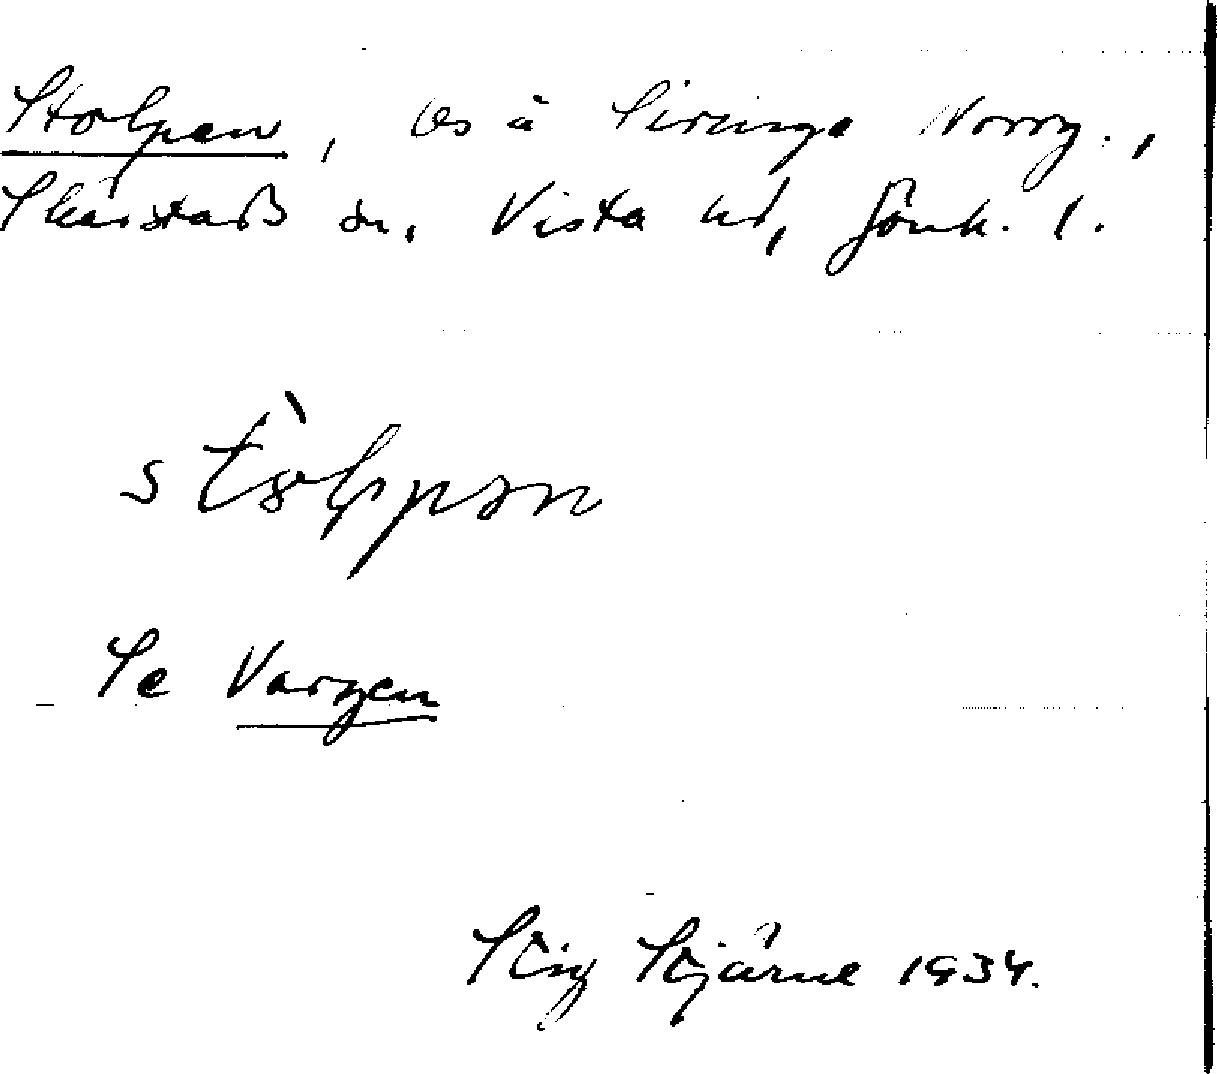 Stolpen, ös å Siringe Norrg.,
Skärstads sn, Vista hd, Jönk. l.
stòlpən
Se Vargen
Stig Stjärne 1934.